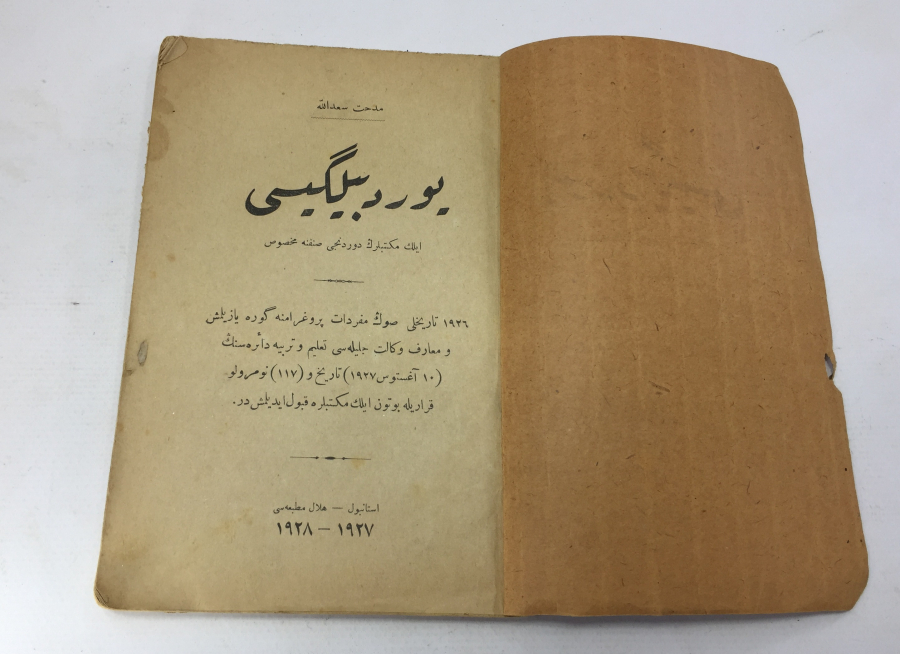 مدحت سعدالله
یورد بیلگیسی
ایلك مكتبلرڭ دوردنجی صنفنه مخصوص
١٩٢٦ تاریخلی صوڭ مفردات پروغرامنه گوره یازیلمش
و معارف وكالت جلیله‌سی تعلیم و تربیه دائره‌سنڭ
(١٠ آغستوس ١٩٢٧) تاریخ و (١١٧) نومرولو
قراریله بوتون ایلك مكتبلره قبول ایدیلمش در.
استانبول — هلال مطبعه‌سی
١٩٢٧ — ١٩٢٨